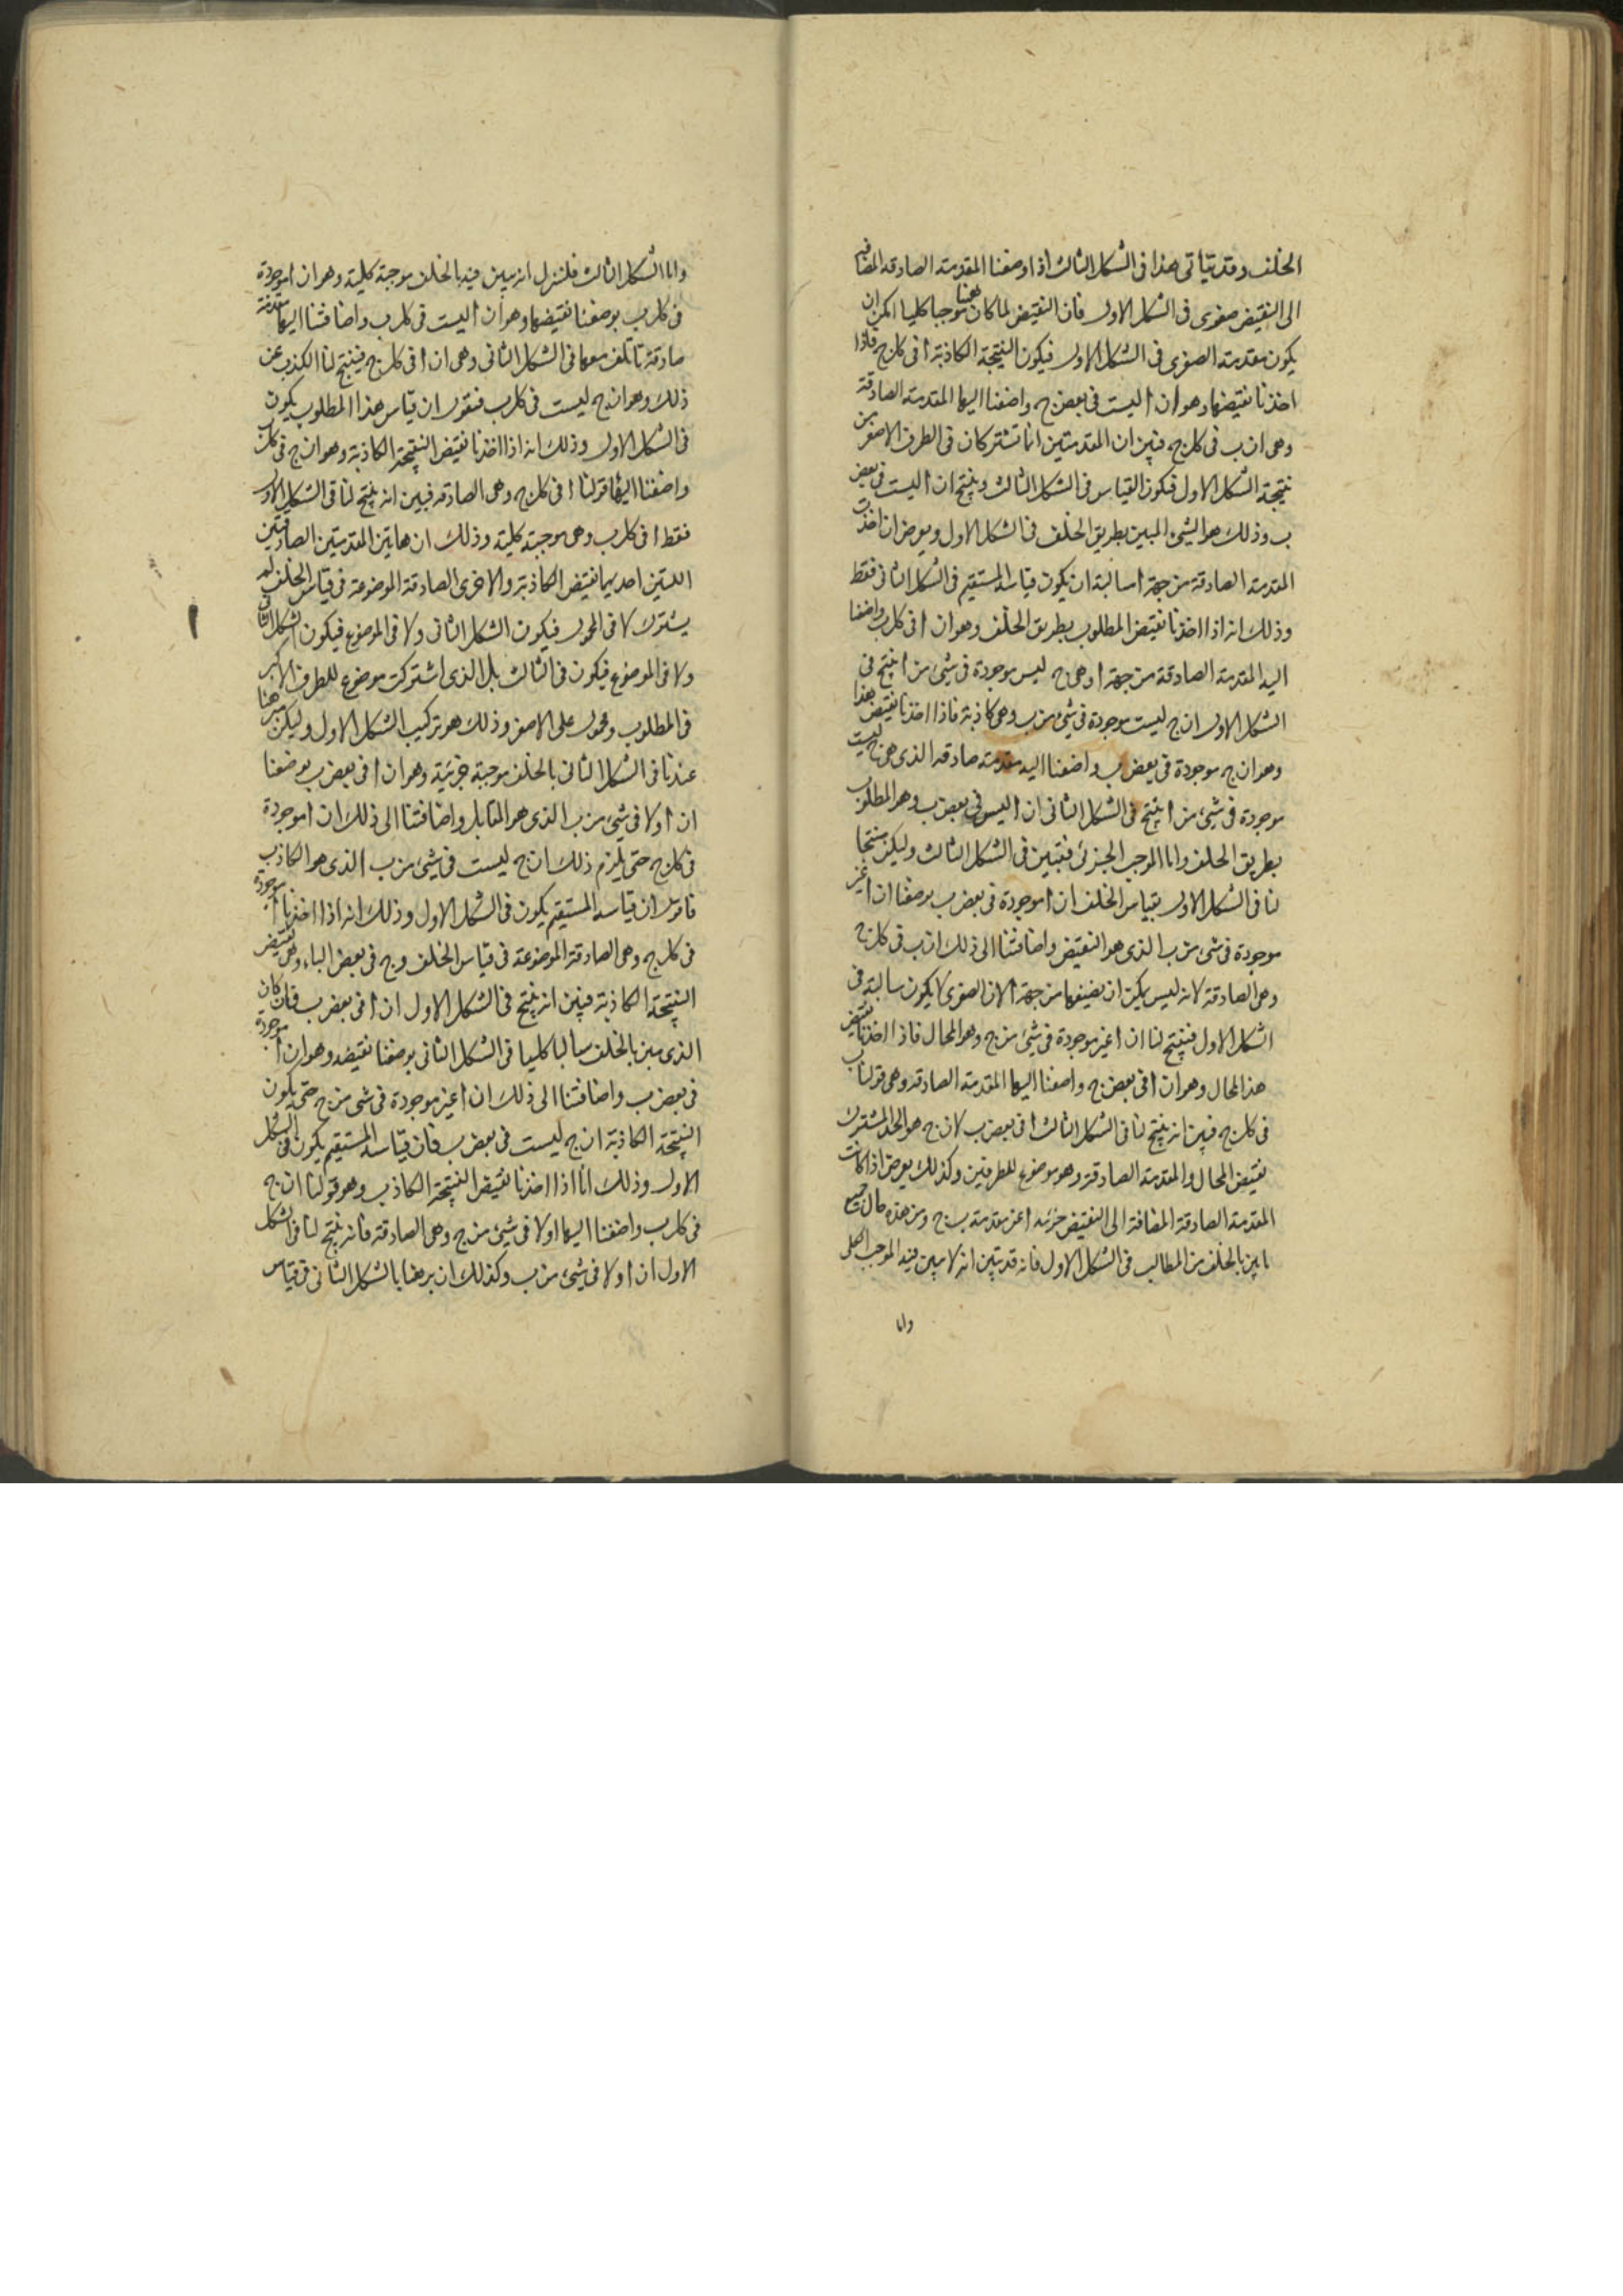 الخلف وقد يتأتى هذا فى الشكل الثالث اذا وضعنا المقدمة الصادقه المضافه
الى النقيض صغرى فى الشكل الاول فان النقيض لما كان ههنا موجبا كليا امكن ان
يكون مقدمته الصغرى فى الشكل الاول فيكون النتيجة الكاذبة ا فى كل ج فاذا
اخذنا نقيضها وهو ان ا ليست فى بعض ج واضفنا اليها المقدمة الصادقة
وهى ان ب فى كل ج فبين ان المقدمتين انما تشتركان فى الطرف الاصغر من
نتيجة الشكل الاول فيكون القياس فى الشكل الثالث وينتج ان ا ليست فى بعض
ب وذلك هو الشئ المبين بطريق الخلف فى الشكل الاول ويعرض ان اخذت
المقدمة الصادقة من جهة ا سالبة ان يكون قياسه المستقيم فى الشكل الثانى فقط
وذلك انه اذا اخذنا نقيض المطلوب بطريق الخلف وهو ان ا فى كل ب واضفنا
اليه المقدمة الصادقة من جهة ا وهى ج ليس موجودة فى شئ من ا ينتج فى
الشكل الاول ان ج ليست موجودة فى شئ من ب وهى كاذبة فاذا اخذنا نقيض هذا
وهو ان ج موجودة فى بعض ب واضفنا اليه مقدمته صادقه الذى هى ج ليست
موجودة فى شئ من ا ينتج فى الشكل الثانى ان ا ليس فى بعض ب وهو المطلوب
بطريق الخلف واما الموجب الجزئى فتبين فى الشكل الثالث وليكن منتجا
لنا فى الشكل الاول بقياس الخلف ان ا موجودة فى بعض ب بوضعنا ان ا غير
موجودة فى شئ من ب الذى هو النقيض واضافتنا الى ذلك ان ب فى كل ج
وهى الصادقة لانه ليس يمكن ان نضيفها من جهة ا لان الصغرى لا يكون سالبة فى
الشكل الاول فينتج لنا ان ا غير موجودة فى شئ من ج وهو المحال فاذا اخذنا نقيض
هذا المحال وهو ان ا فى بعض ج واضفنا اليها المقدمة الصادقه وهى قولنا ب
فى كل ج فبين انه ينتج لنا فى الشكل الثالث ا فى بعض ب لان ج هو الحد المشترك
لنقيض المحال والمقدمة الصادقة وهو موضوع للطرفين وكذلك يعرض اذا كانت
المقدمة الصادقة المضافة الى النقيض جزئيه اعنى مقدمة ب ج ومن هذه حال جميع
ما يبين بالخلف من المطالب فى الشكل الاول فانه قد تبين انه لا يبين فيه الموجب الكلى
واما
واما الشكل الثالث فلننزل انه يبين فيه بالخلف موجبة كلية وهو ان ا موجودة
فى كل ب بوضعنا نقيضها وهو ان ا ليست فى كل ب واضافتنا اليها مقدمة
صادقة تأتلف معها فى الشكل الثانى وهى ان ا فى كل ج فينتج لنا الكذب عن
ذلك وهو ان ج ليست فى كل ب فنقول ان قياس هذا المطلوب يكون
فى الشكل الاول وذلك انه اذا اخذنا نقيض النتيجة الكاذبة وهو ان ج فى كل ب
واضفنا اليها قولنا ا فى كل ج وهى الصادقه فبين انه ينتج لنا فى الشكل الاول
فقط ا فى كل ب وهى موجبة كلية وذلك ان هاتين المقدمتين الصادقتين
اللتين احديهما نقيض الكاذبة والاخرى الصادقة الموضوعة فى قياس الخلف لم
يشترك لا فى المحمول فيكون الشكل الثانى ولا فى الموضوع فيكون الشكل الثانى
ولا فى الموضوع فيكون فى الثالث بل الذى اشتركت موضوع للطرف الاكبر
فى المطلوب ومحمول على الاصغر وذلك هو تركيب الشكل الاول وليكن مبرهنا
عندنا فى الشكل الثانى بالخلف موجبة جزئية وهو ان ا فى بعض ب بوضعنا
ان ا ولا فى شئ من ب الذى هو المقابل واضافتنا الى ذلك ان ا موجودة
فى كل ج حتى يلزم ذلك ان ج ليست فى شئ من ب الذى هو الكاذب
فاقول ان قياسه المستقيم يكون فى الشكل الاول وذلك انه اذا اخذنا ا موجودة
فى كل ج وهى الصادقة الموضوعة فى قياس الخلف وج فى بعض الباء وهى نقيض
النتيجة الكاذبة فبين انه ينتج فى الشكل الاول ان ا فى بعض ب فان كان
الذى يبين بالخلف سالبا كليا فى الشكل الثانى بوضعنا نقيضه وهو ان ا موجودة
فى بعض ب واضافتنا الى ذلك ان ا غير موجودة فى شى من ج حتى يكون
النتيجة الكاذبة ان ج ليست فى بعض ب فان قياسه المستقيم يكون فى الشكل
الاول وذلك انا اذا اخذنا نقيض النتيجة الكاذب وهو قولنا ان ج
فى كل ب واضفنا اليها ا ولا فى شئ من ج وهى الصادقة فانه ينتج لنا فى الشكل
الاول ان ا ولا فى شئ من ب وكذلك ان برهنا بالشكل الثانى فى قياس